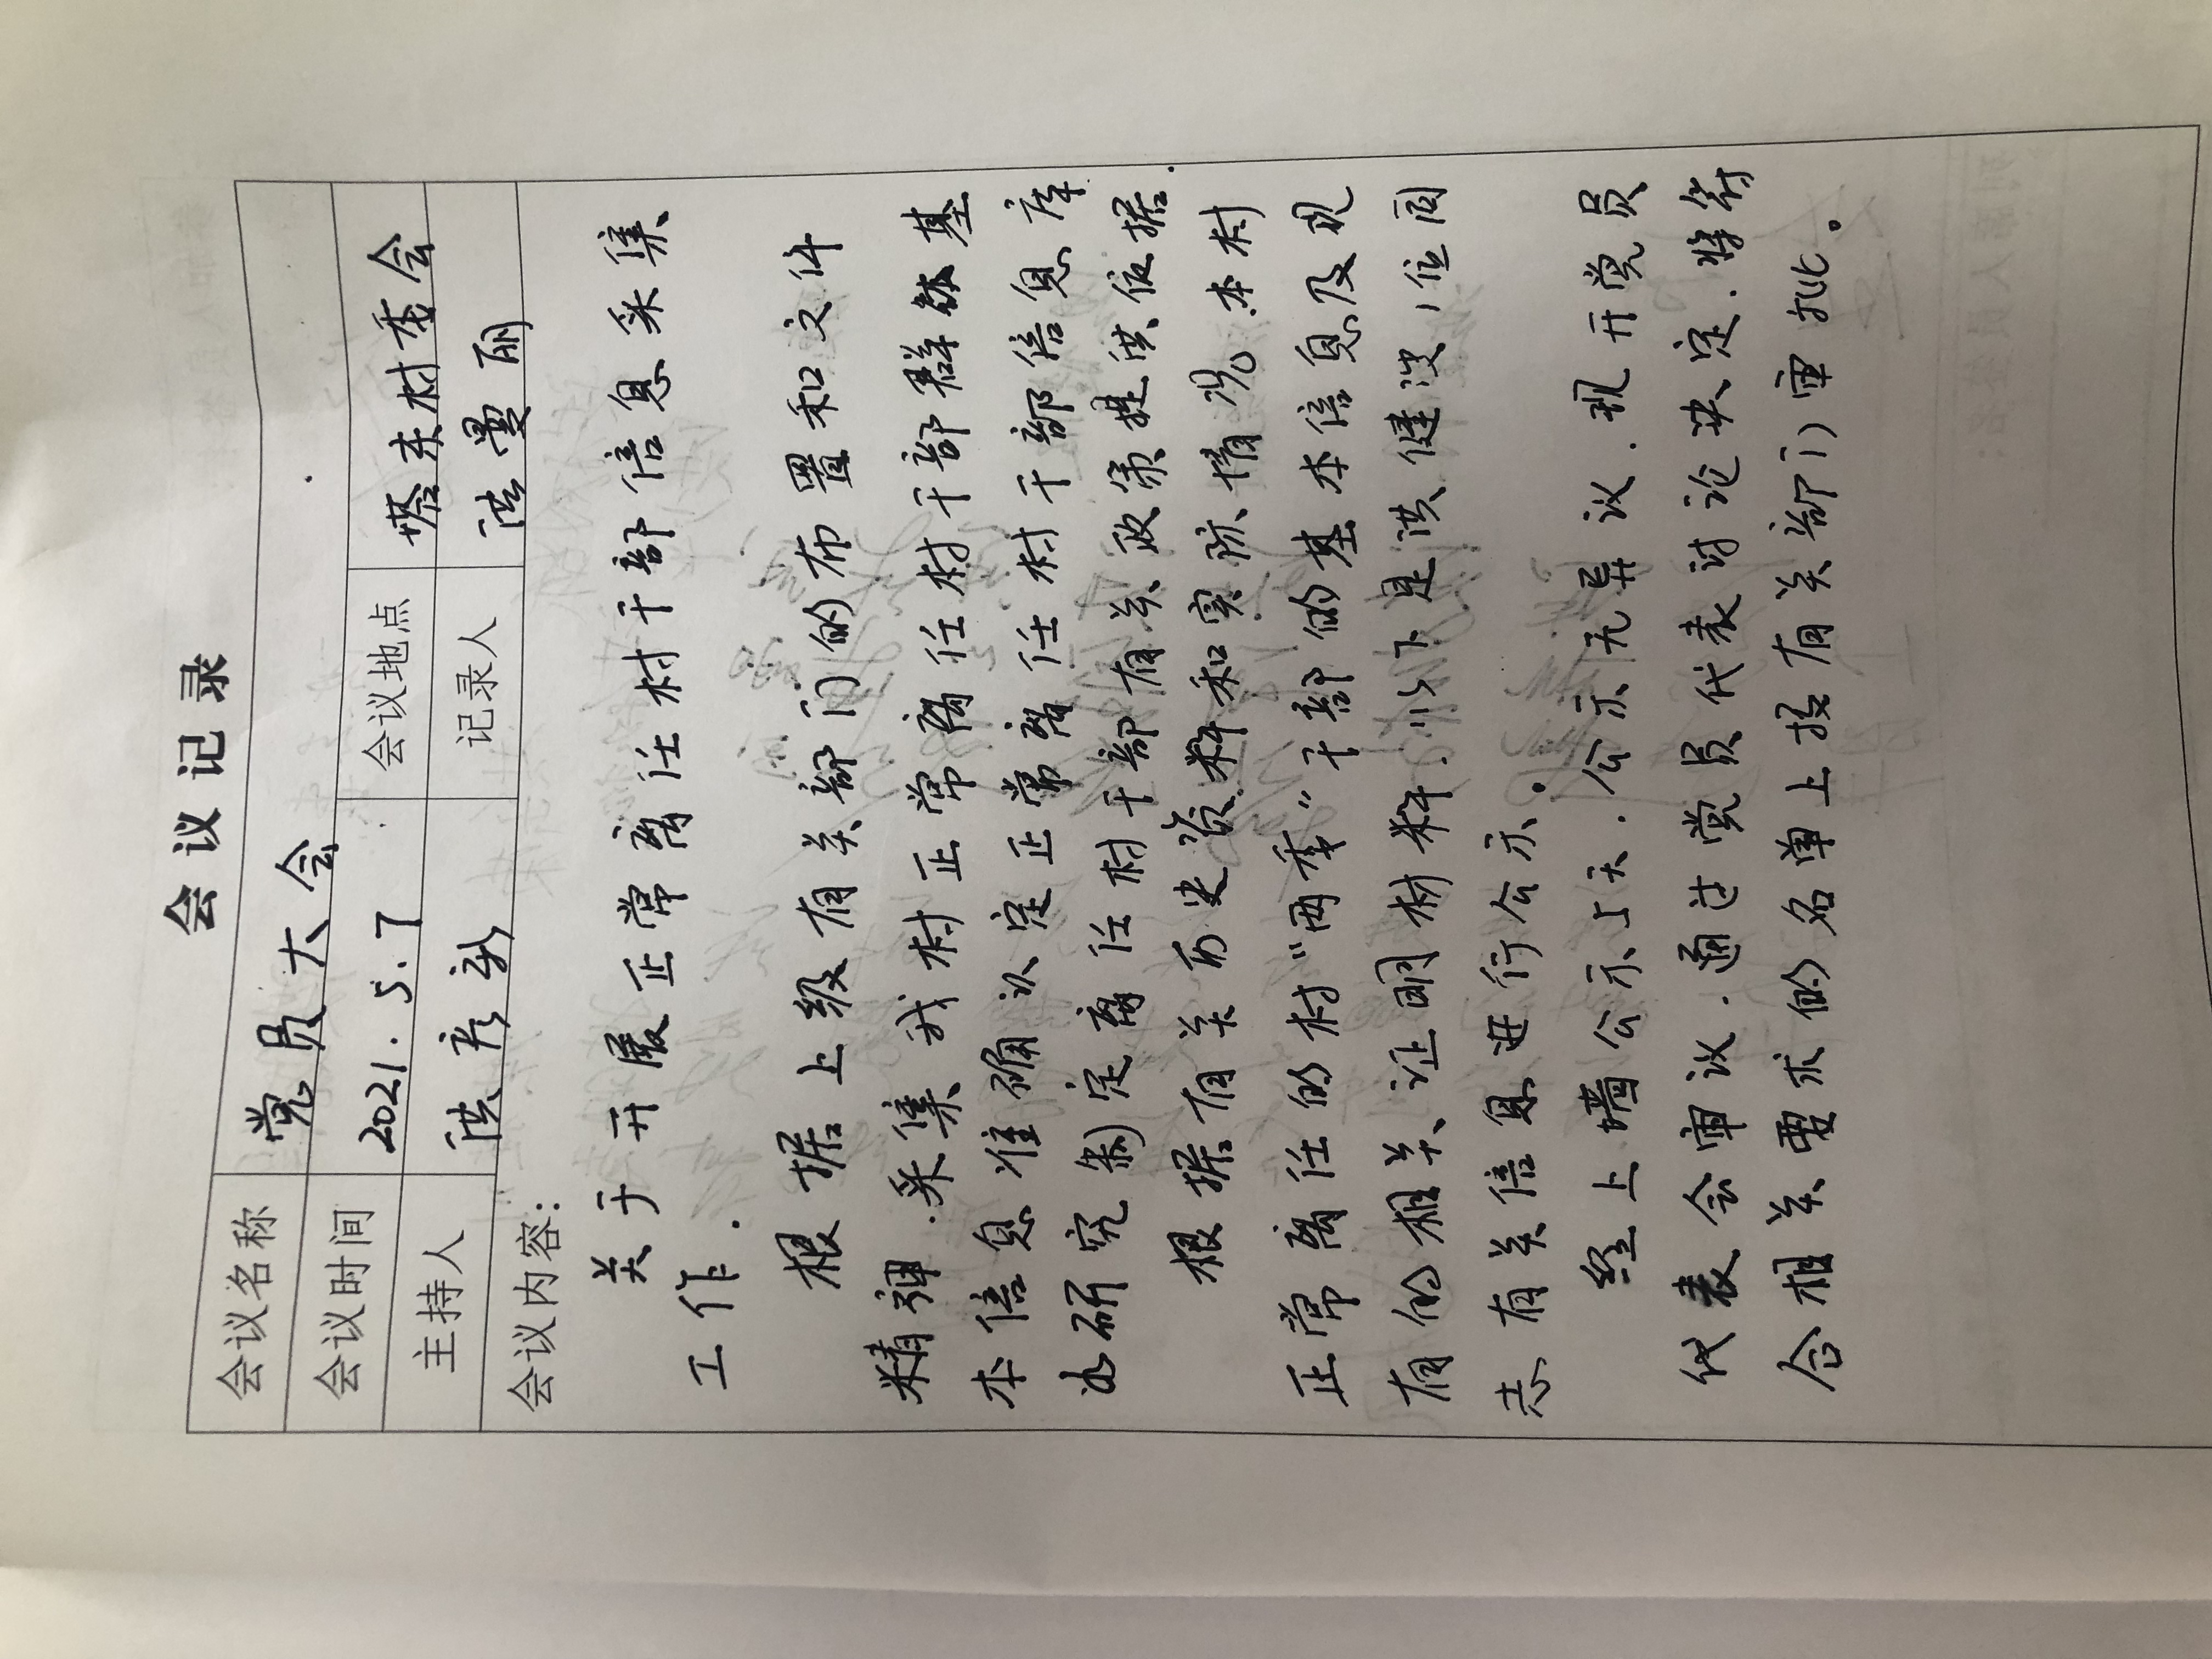 会议记录
会议名称 党员大会
会议时间 2021.5.7 会议地点 塔东村委会
主持人 洪 记录人 洪曼丽
会议内容:
关于开展正常离任村干部信息采集
工作.
根据上级有关部门的布置和文件
精神.采集我村正常离任村干部群体基
本信息准确认定正常离任村干部信息库
为研究制定离任村干部有关政策提供依据.
根据有关历史资料和实际情况.本村
正常离任的村“两委”干部的基本信息及现
有的相关证明材料.以下是洪健浸1位同
志有关信息进行公示。
经上墙公示5天.公示无异议.现开党员
代表会审议.通过党员代表讨论决定.将符
合相关要求的名单上报有关部门审批。